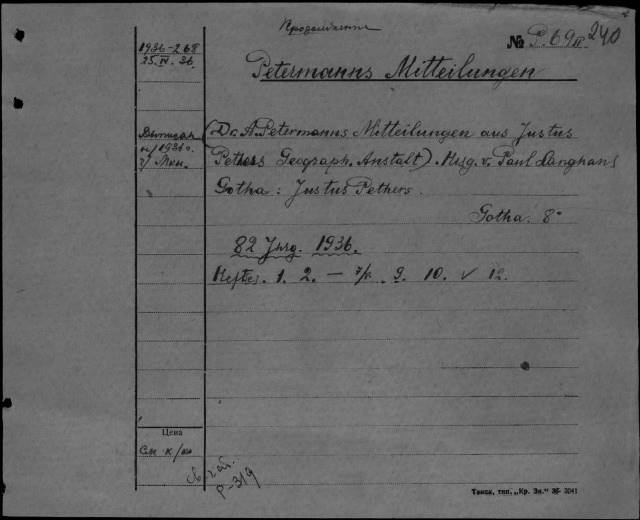 Продолжение
№ P. 69 II 240
1936-268
25 IV. 36.
Petermanns Mitteilungen
Выписан
н/1936 г.
(Dr. A. Petermanns Mitteilungen aus Justus
Pethers Geograph. Anstalt). Hrsg. v. Paul Langhans
Gotha: Justus Pethers.
Gotha. 8°
82 Jhrg. 1936.
Heftes. 1. 2. — 7/8. 9. 10. v 12.
Цена
См к/
P-319
Томск, тип. „Кр. Зн.“ 36- 3041